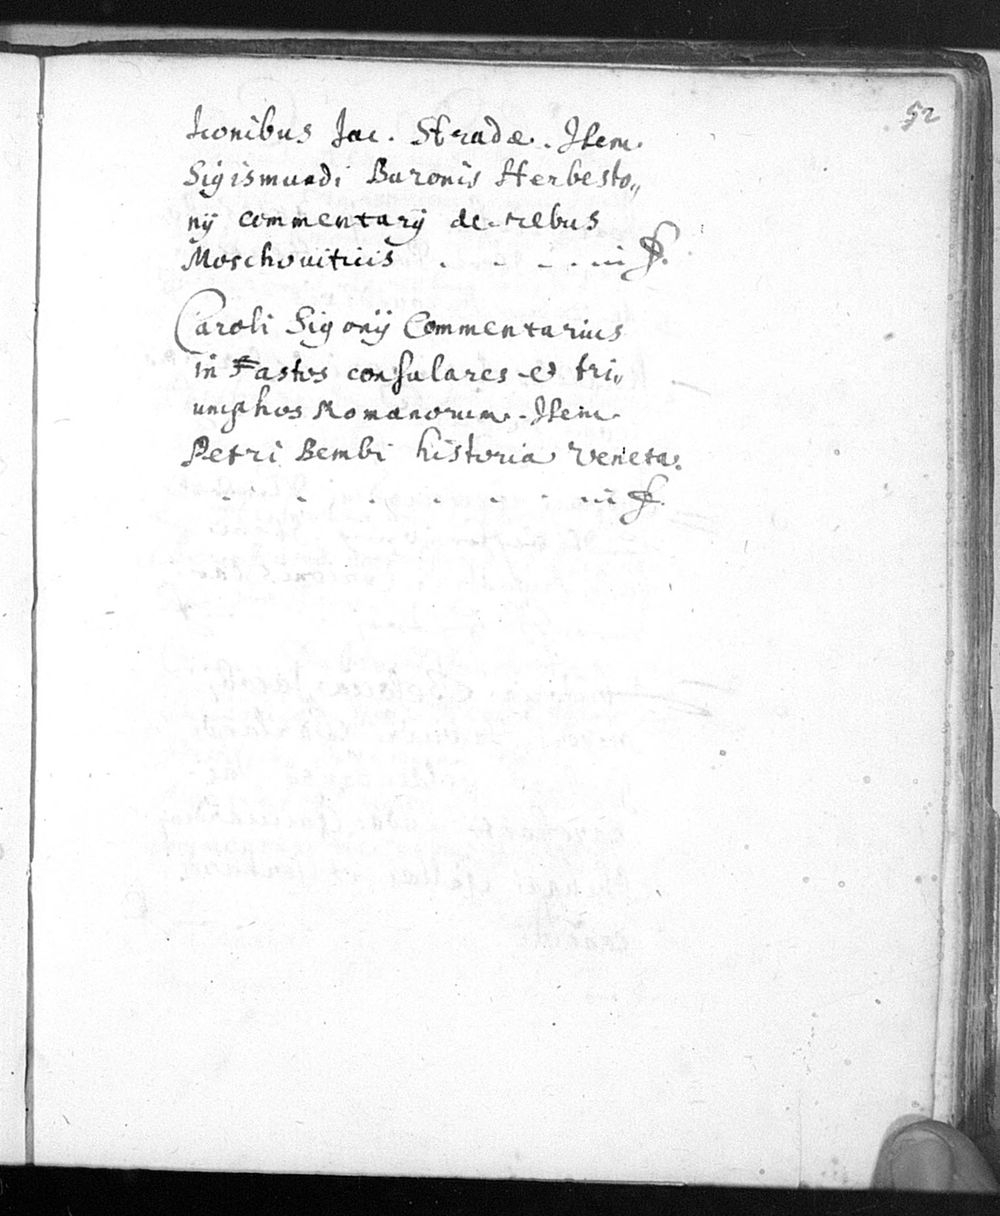 52
Iconibus Jac. Stradæ. Item
Sigismundi Baronis Herbesto„
nÿ commentarÿ de rebus
Moschouiticis . . . . in f.
Caroli Sigonÿ Commentarius
in Fastos consulares et tri„
umphos Romanorum. Item
Petri Bembi historia Veneta.
. . . . . in f.